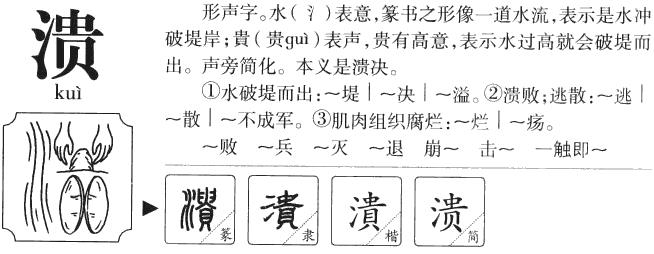 溃
kuì
形声字。水(氵)表意,篆书之形像一道水流,表示是水冲
破堤岸;貴(贵guì)表声,贵有高意,表示水过高就会破堤而
出。声旁简化。本义是溃决。
①水破堤而出:～堤｜～决｜～溢。②溃败;逃散:～逃｜
～散｜～不成军。③肌肉组织腐烂:～烂｜～疡。
～败 ～兵 ～灭 ～退 崩～ 击～ 一触即～
潰 篆 潰 隶 潰 楷 溃 简